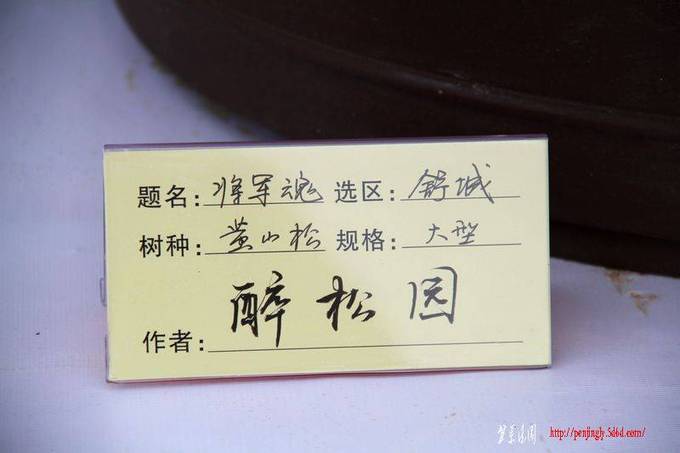 题名：将军魂 选区：舒城
树种：黄山松 规格：大型
作者：醉松园
http://penjingly.5d6d.com/